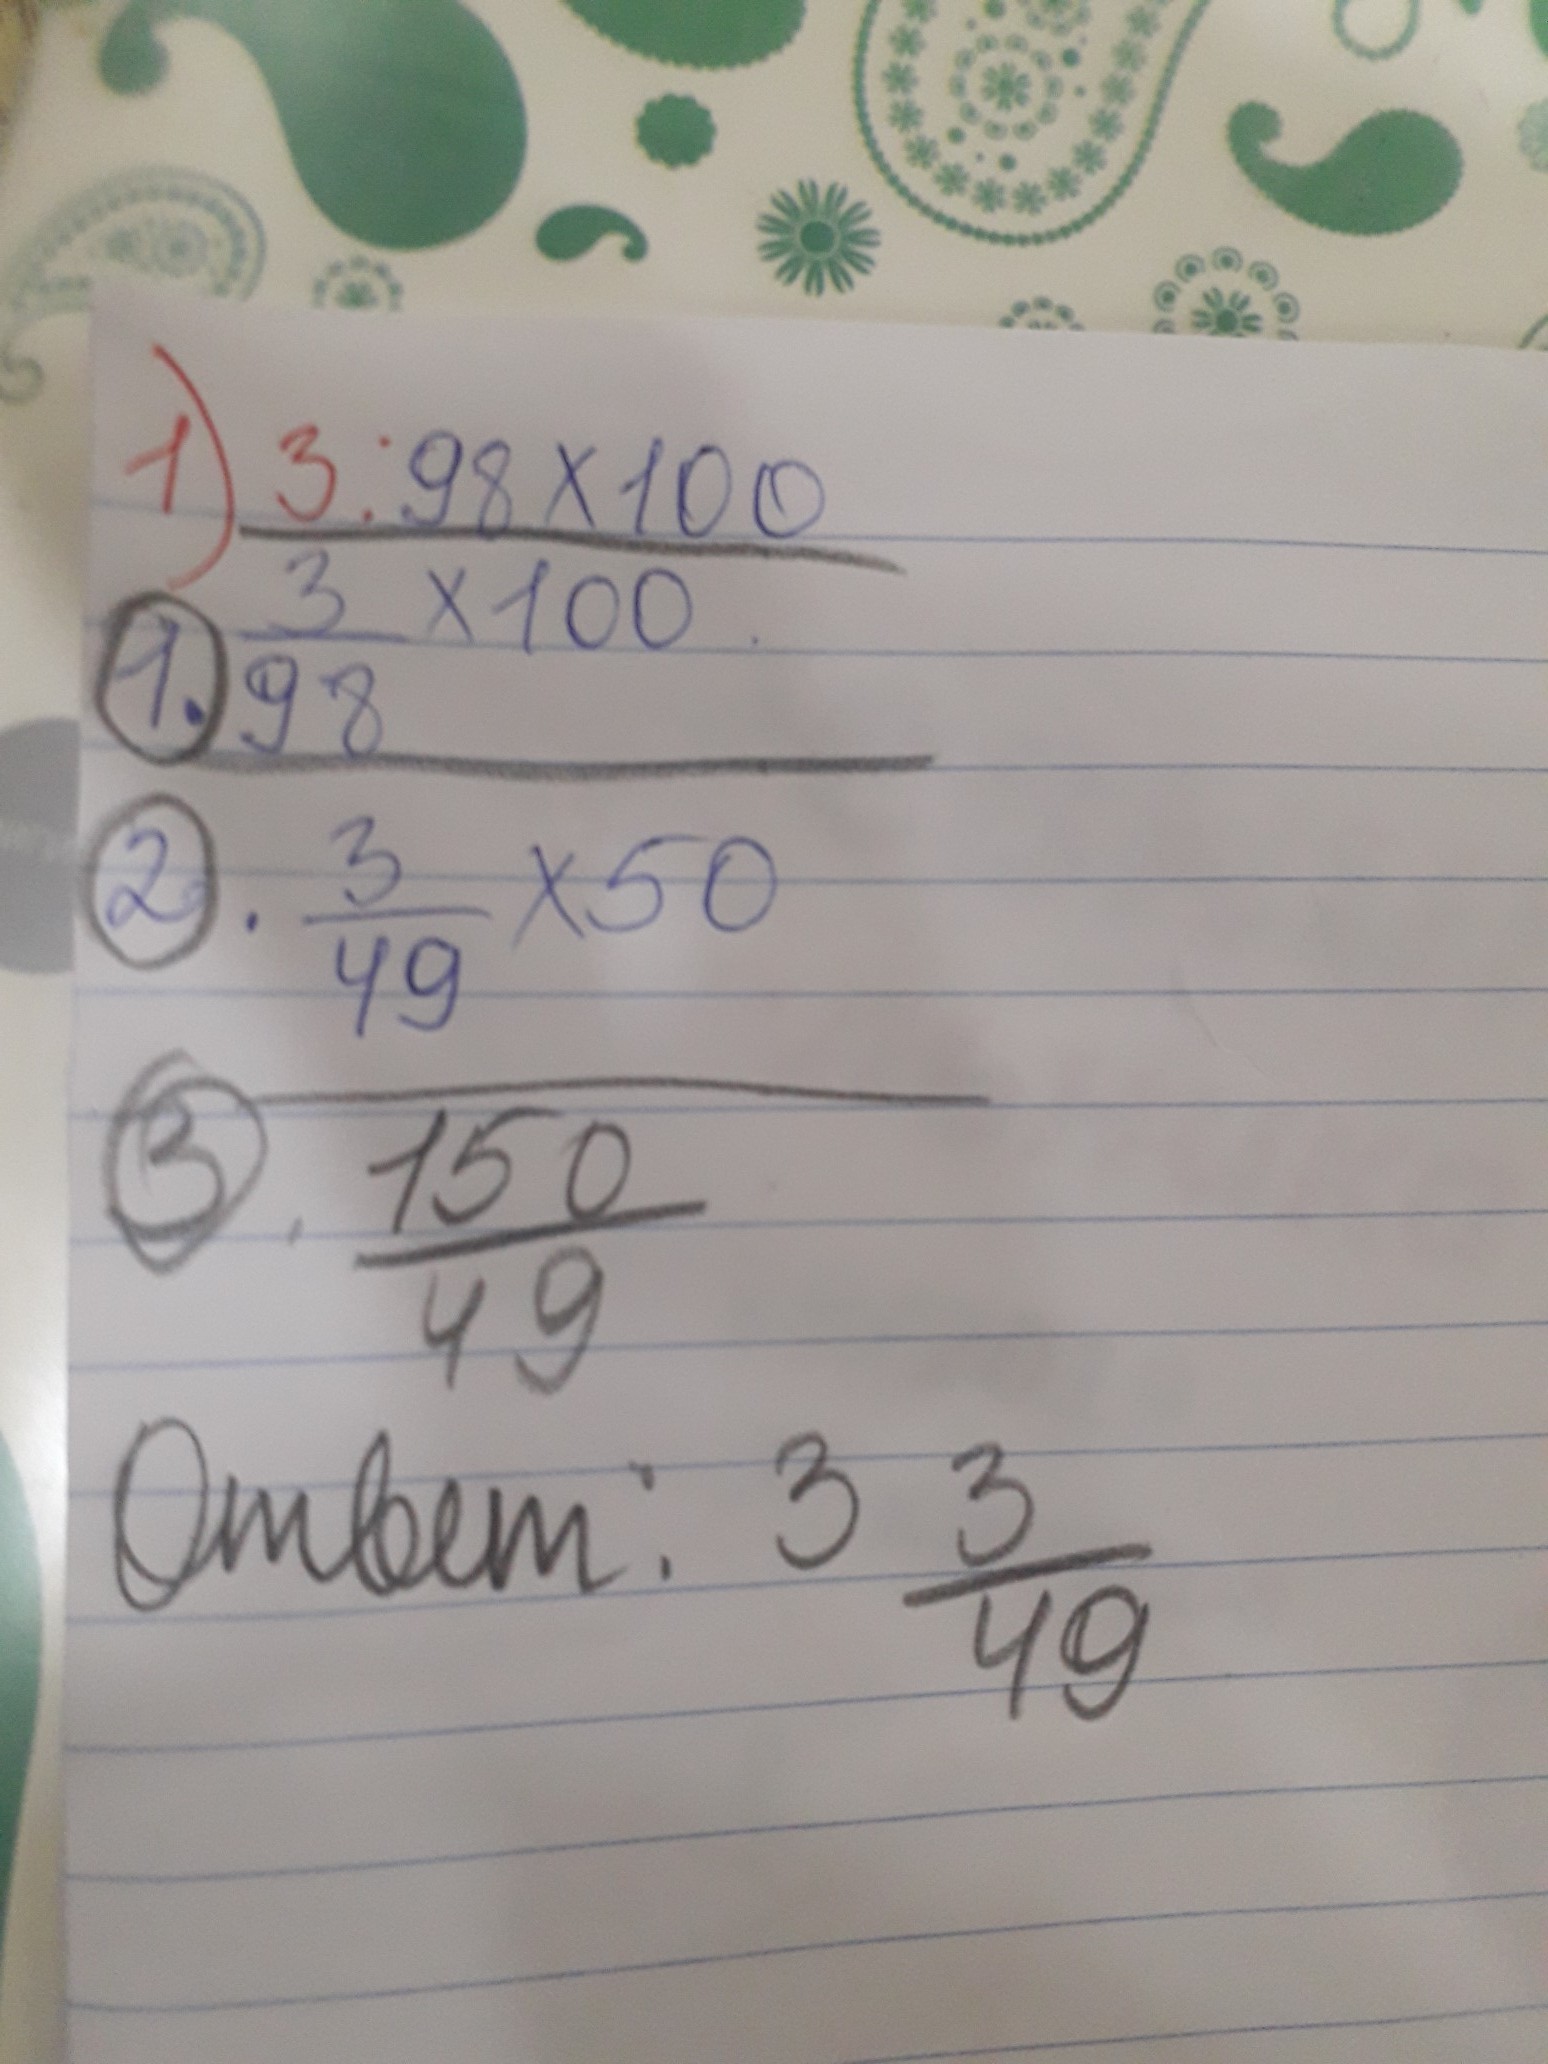 1) 3:98x100
1. 3/98 x100
2. 3/49 x50
3. 150/49
Ответ: 3 3/49